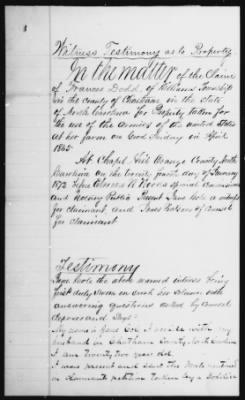 Witness Testimony as to Property
In the matter of the Claim
of Frances Dodd, of Williams Township
in the County of Chatham in the State
of North Carolina for Property taken for
the use of the armies of the united states
at her farm on Good Friday in April
1865.
At Chapel Hill Orange County North
Carolina on the twenty fourth day of January
1872 before special Commissioner
and Notary Public Present Jane Cole a witness
for claimant, and of Counsel
for claimant
Testimony
Jane Cole the above named witness being
first duly sworn in and
answering questions asked by Counsel
deposes and says:
My name is Jane Cole, I reside with my
husband in Chatham County North Carolina
I am twenty two years old.
I was present and saw the mule mentioned
in claimants petition taken by a Soldier